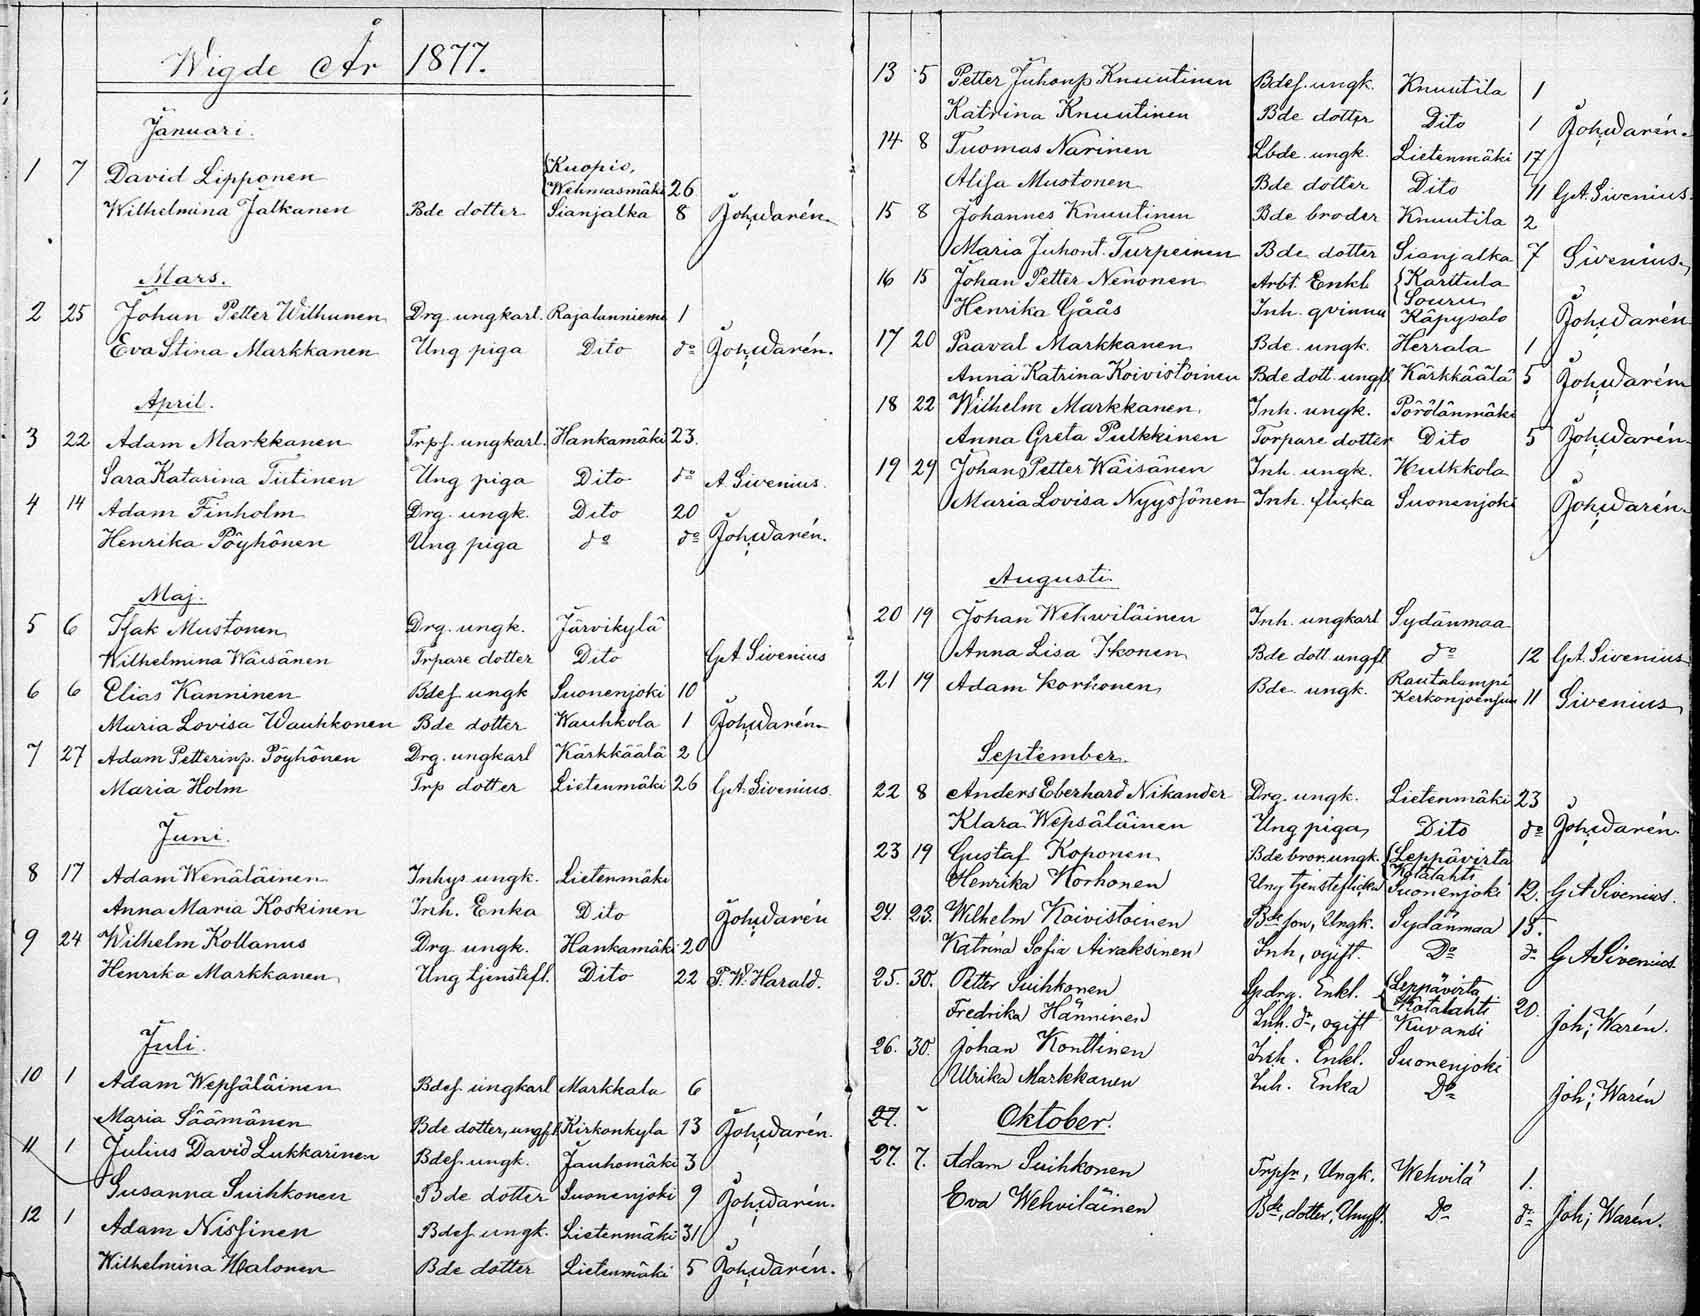 Wigde År 1877.
Januari.
1 7 David Lipponen Kuopio, Wehmasmäki 26
Wilhelmina Jalkanen Bde dotter Sianjalka 8 Joh; Warén
Mars.
2 25 Johan Petter Wilhunen Drg. ungkarl. Rajalanniemi 1
Eva Stina Markkanen Ung piga Dito do Joh; Warén.
April.
3 22 Adam Markkanen Trpf. ungkarl. Hankamäki 23.
Sara Katarina Tiitinen Ung piga Dito do A. Sivenius.
4 14 Adam Finholm Drg. ungk. Dito 20
Henrika Pöyhönen Ung piga do do Joh; Warén.
Maj.
5 6 Isak Mustonen Drg. ungk. Järvikylä
Wilhelmina Wäisänen Trpare dotter Dito G.A. Sivenius
6 6 Elias Kanninen Bdef ungk Suonenjoki 10
Maria Lovisa Wauhkonen Bde dotter Wauhkola 1 Joh; Warén
7 27 Adam Petterinp. Pöyhönen Drg. ungkarl Kärkkäälä 2
Maria Holm Trp dotter Lietenmäki 26 G.A. Sivenius.
Juni.
8 17 Adam Wenäläinen Inhys ungk. Lietenmäki
Anna Maria Koskinen Inh. Enka Dito Joh; Warén
9 24 Wilhelm Kollanus Drg. ungk. Hankamäki 20
Henrika Markkanen Ung tjenstefl. Dito 22 P. W. Harald.
Juli.
10 1 Adam Wepsäläinen Bdef. ungkarl Markkala 6
Maria Säämänen Bde dotter, ungfl. Kirkonkyla 13 Joh; Warén.
11 1 Julius David Lukkarinen Bdef. ungk. Jauhomäki 3
Susanna Suihkonen Bde dotter Suonenjoki 9 Joh; Warén.
12 1 Adam Nissinen Bdef ungk. Lietenmäki 31
Wilhelmina Halonen Bde dotter Lietenmäki 5 Joh; Warén.
13 5 Petter Juhonp Knuutinen Bdef. ungk. Knuutila 1
Katrina Knuutinen Bde dotter Dito 1 Joh; Warén.
14 8 Tuomas Narinen Lbde. ungk. Lietenmäki 17
Alisa Mustonen Bde dotter Dito 11 G.A. Sivenius.
15 8 Johannes Knuutinen Bde broder Knuutila 2
Maria Juhont. Turpeinen Bde dotter Sianjalka 7 Sivenius
16 15 Johan Petter Nenonen Arbt. Enkl. Karttula Souru
Henrika Gåås Inh. qvinna Käpysalo Joh; Warén
17 20 Paaval Markkanen Bde. ungk. Herrala 1
Anna Katrina Koivistoinen Bde dott. ungfl Kärkkäälä 5 Joh; Warén
18 22 Wilhelm Markkanen Inh. ungk. Pörölänmäki
Anna Greta Pulkkinen Torpare dotter Dito 5 Joh; Warén.
19 29 Johan Petter Wäisänen Inh. ungk. Hulkkola
Maria Lovisa Nyyssönen Inh. flicka Suonenjoki Joh; Warén.
Augusti.
20 19 Johan Wehviläinen Inh. ungkarl Sydänmaa
Anna Lisa Ikonen Bde dott ungfl do 12 G.A. Sivenius
21 19 Adam Korhonen Bde. ungk. Rautalampi Kerkonjoensuu 11 Sivenius
September.
22 8 Anders Eberhard Nikander Drg. ungk. Lietenmäki 23
Klara Wepsäläinen Ung piga Dito do Joh; Warén.
23 19 Gustaf Koponen Bde bror ungk. Leppävirta Kotalahti
Henrika Korhonen Ung tjensteflicka Suonenjoki 12. G A Sivenius.
24. 23. Wilhelm Koivistoinen Bde son, Ungk. Sydänmaa 15.
Katrina Sofia Airaksinen Inh, ogift. Do do G A Sivenius.
25. 30. Petter Suihkonen Spdrg. Enkl. Leppävirta Kotalahti 20.
Fredrika Hänninen Inh. dr, ogift Kuvansi Joh; Warén.
26. 30. Johan Konttinen Inh. Enkl. Suonenjoki
Ulrika Markkanen Inh. Enka Do Joh; Warén
27. Oktober.
27. 7. Adam Suihkonen Trpsn, Ungk. Wehvilä 1.
Eva Wehviläinen Bde, dotter, Ungfl. Do do Joh; Warén.